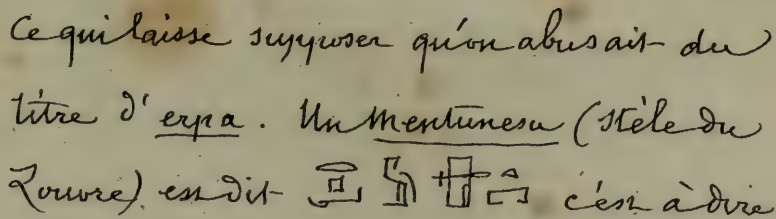 Ce qui laisse supposer qu'on abusait du
titre d'erpa. Un Mentunesu (stèle du
Louvre) est dit c'est à dire